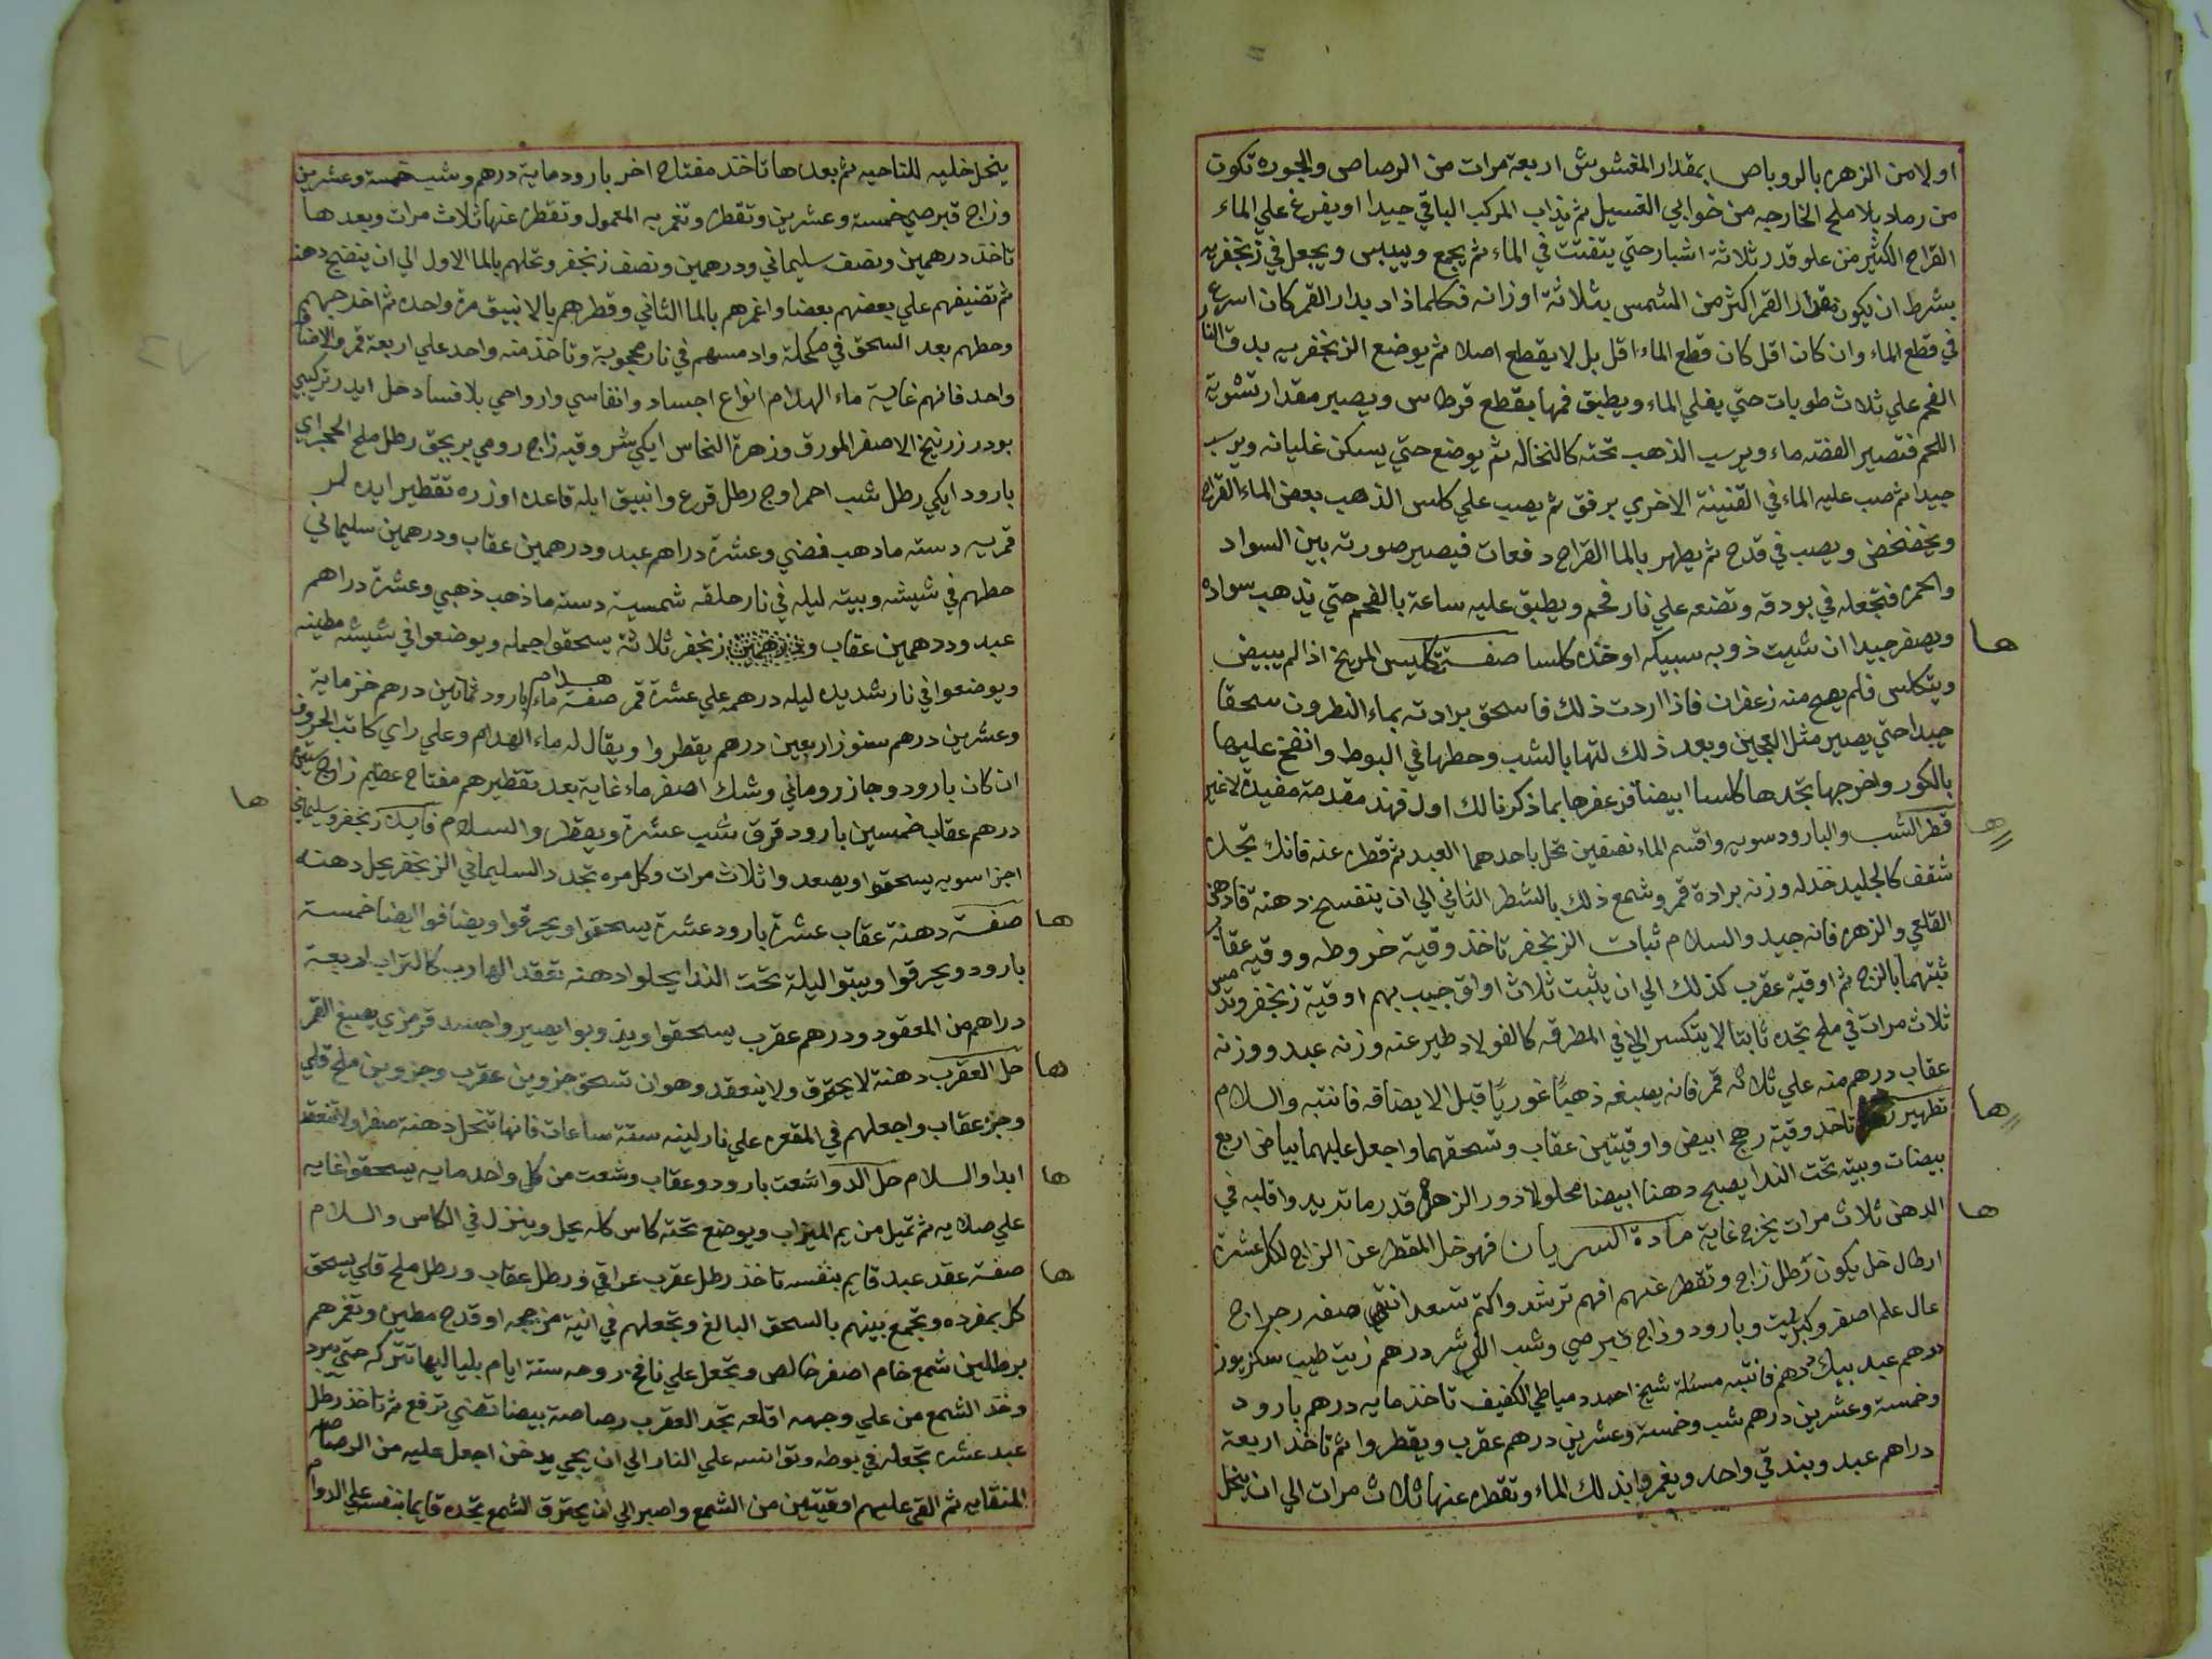 اولا من الزهره بالروباص بمقدار المغشوش اربعة مرات من الرصاص والجوره تكون
من رماد بلا ملح الخارجه من خوابي الغسيل ثم يذاب المركب الباقي جيدا او يفرغ علي الماء
القراح الكثير من علو قدر ثلاثة اشبار حتي يتفتت في الماء ثم يجمع وييبس ويجعل في زنجفريه
بشرط ان يكون مقدار القمر اكثر من الشمس بثلاثة اوزانه فكلما ذاد يدار القمر كان اسرع
في قطع الماء وان كان اقل كان قطع الماء اقل بل لا يقطع اصلا ثم يوضع الزنجفريه بدق النار
الفحم علي ثلاث طوبات حتي يغلي الماء ويطبق فمها بقطع قرطاس ويصير مقدار تشوية
اللحم فتصير الفضه ماء ويرسب الذهب تحته كالنخاله ثم يوضع حتي يسكن غليانه ويرسب
جيدا ثم صب عليه الماء في القنينة الاخري برفق ثم يصب علي كاس الذهب بعض الماء القراح
ويخضخض ويصب في قدح ثم يطهر بالما القراح دفعات فيصير صورته بين السواد
والحمره فتجعله في بودقه وتضعه علي نار فحم ويطبق عليه ساعة بالفحم حتي يذهب سواده
ويصفر جيدا ان شيت ذوبه سبيكه او خذه كلسا صفة تكليس المريخ اذا لم يبيض
ويتكلس فلم يصح منه زعفران فاذا اردت ذلك فاسحق برادته بماء النطرون سحقا
جيدا حتي يصير مثل العجين وبعد ذلك لتها بالشب وحطها في البوط وانفخ عليها
بالكور واخرجها تجدها كلسا ابيضا فزعفرها بما ذكرنا لك اول فهذه مقدمة مفيدة لا غير
قطر الشب والبارود سويه واقسم الماء نصفين تحل باحدهما العبد ثم قطره عنه فانك تجده
شقف كالجليد خذ له وزنه برادة قمر وشمع ذلك بالشطر الثاني الي ان ينفسخ دهنة فادهن
القلعي والزهره فانه جيد والسلام ثبات الزنجفر تاخذ وقية خروطه ووقيه عقاب
ثبتهما بالزج ثم اوقية عقرب كذلك الي ان يثبت ثلاث اواق جيب بهم اوقية زنجفر وتدمس
ثلاث مرات في ملح تجده ثابتا لا يتكسر الا في المطرقه كالفولاد طير عنه وزنه عبد ووزنه
عقاب درهم منه علي ثلاثه قمر فانه يصبغه ذهبًا غوريًا قبل الا يضاقه فانتبه والسلام
تطهير تاخذ وقية رهج ابيض واوقيتين عقاب وتسحقهما واجعل عليهما بياض اربع
بيضات وبيته تحت الندا يصبح دهنا ابيضا محلولا ذور الزهره قدر ما تريد واقلبه في
الدهن ثلاث مرات يخرج غاية مادة السريان فهو خل المقطر عن الزاج لكل عشرة
ارطال خل يكون رطل زاج وتقطر عنهم افهم ترشد واكتم تسعد انتهي صفه رجراج
عال علم اصفر وكبريت وبارود وزاج قبرصي وشب اللي شر درهم زيت طيب سكز يوز
درهم عبد بيك درهم فانتبه مسئلة شيخ احمد دمياطي الكفيف تاخذ مايه درهم بارود
وخمسة وعشرين درهم شب وخمسة وعشرين درهم عقرب ويقطروا ثم تاخذ اربعة
دراهم عبد وبندقي واحد ويغمروا بذلك الماء وتقطره عنها ثلاث مرات الي ان ينحل
ها
ها
ها
ها
ينحل خليه للناحيه ثم بعدها تاخذ مفتاح اخر بارود ماية درهم وشب خمسة وعشرين
وزاج قبرصي خمسة وعشرين وتقطره وتغمر به المعمول وتقطره عنها ثلاث مرات وبعدها
تاخذ درهمين ونصف سليماني ودرهمين ونصف زنجفر وتحلهم بالما الاول الي ان ينضج دهنه
ثم تضيفهم علي بعضهم بعضا واغمرهم بالما الثاني وقطرهم بالانبيق مرة واحده ثم اخرجهم
وحطهم بعد السحق في مكحلة وادمسهم في نار محجوبة وتاخذ منه واحد علي اربعة قمر والاضافه
واحد فانهم غاية ماء الهدام انواع اجساد وانفاسي وارواحي بلا فساد حل ايدر تركيبي
بودر زرنيخ الاصفر المورق وزهرة النحاس ايكي شر وقيه زاج رومي بر بجق رطل ملح الحجر اي
بارود ايكي رطل شب احمر اوج رطل قرع وانبيق ايله قاعده اوزره تقطير ايده لر
قمريه دسته مادهب فضي وعشرة دراهم عبد ودرهمين عقاب ودرهمين سليماني
حطهم في شيشه وبيته ليله في نار حلقه شمسية دسته ماذهب ذهبي وعشرة دراهم
عبد ودرهمين عقاب ودرهمين زنجفر ثلاثة يسحقوا جمله ويوضعوا في شيشه مطينه
ويوضعوا في نار شديده ليله درهمه علي عشرة قمر صفة ماء هدام بارود ثمانين درهم خز ماية
وعشرين درهم سنوز اربعين درهم يقطروا ويقال له ماء الهدام وعلي راي كاتب الحروف
ان كان بارود وجاز روماني وشك اصفر ماء غاية بعد تقطيرهم مفتاح عظيم زاج ستين
درهم عقاب خمسين بارود قرق شب عشرة ويقطر والسلام فايدة زنجفر وسليماني
اجزا سويه يسحقوا ويصعدوا ثلاث مرات وكل مره تجدد السليماني الزنجفر يحل دهنه
صفة دهنة عقاب عشرة بارود عشرة يسحقوا ويحرقوا ويضافوا ايضا خمسة
بارود ويحرقوا ويبتوا ليلة تحت الندا يحلوا دهنه تعقد الهارب كالتراب اربعة
دراهم من المعقود ودرهم عقرب يسحقوا ويذوبوا يصير واجسد قرمزي يصبغ القمر
حل العقرب دهنة لا يحترق ولا ينعقد وهو ان تسحق جزوين عقرب وجزوين ملح قلي
وجزء عقاب واجعلهم في المقعره علي نار لينه ستة ساعات فانها تنحل دهنة صفرا ولا تنعقد
ابدا والسلام حل الدوا شعت بارود وعقاب وشعت من كل واحد مايه يسحقوا غايه
علي صلايه ثم تميل من يم الميزاب ويوضع تحته كاس كله يحل وينزل في الكاس والسلام
صفة عقد عبد قايم بنفسه تاخذ رطل عقرب عراقي ورطل عقاب ورطل ملح قلي يسحق
كل بمفرده وتجمع بينهم بالسحق البالغ وتجعلهم في انية مزججه او قدح مطين وتغمرهم
برطلين شمع خام اصفر خالص وتجعل علي نافخ روحه ستة ايام بلياليها تتركه حتي يبرد
وخذ الشمع من علي وجهه اقلعه تجد العقرب رصاصة بيضا تضي ترفع ثم تاخذ رطل
عبد عشره تجعله في بوطه وتوانسه علي النار الي ان يجي يدخن اجعل عليه من الرصاص
المنقايه ثم القي عليهم اوقيتين من الشمع واصبر الي ان يحترق الشمع تجده قايما بنفسه علي الدوام
ها
ها
ها
ها
ها